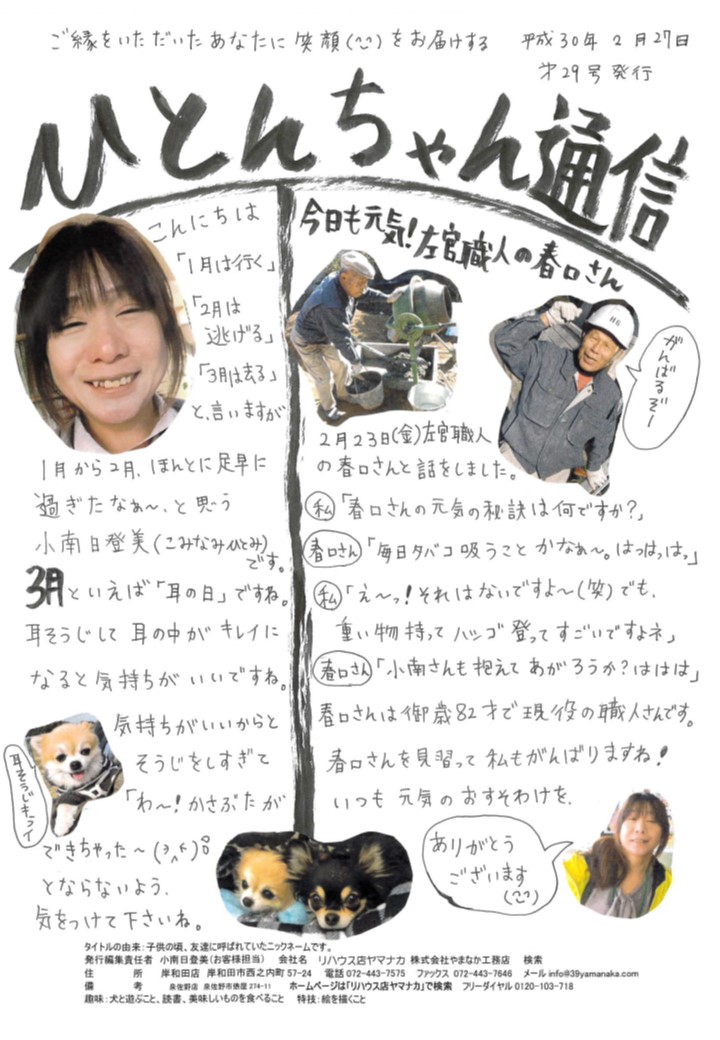 ご縁をいただいたあなたに笑顔(^^)をお届けする 平成30年2月27日
第29号発行
ひとんちゃん通信
こんにちは
「1月は行く」
「2月は
逃げる」
「3月は去る」
と、言いますが
1月から2月、ほんとに足早に
過ぎたなぁ〜、と思う
小南日登美(こみなみひとみ)
です。
3月といえば「耳の日」ですね。
耳そうじして耳の中がキレイに
なると気持ちがいいですね。
気持ちがいいからと
そうじをしすぎて
「わ〜!かさぶたが
できちゃった〜
とならないよう、
気をつけて下さいね。
耳そうじキライ
今日も元気!左官職人の春口さん
がんばるぞー
2月23日(金)左官職人
の春口さんと話をしました。
私「春口さんの元気の秘訣は何ですか?」
春口さん「毎日タバコ吸うことかなぁ〜。はっはっはっ」
私「え〜っ!それはないですよ〜(笑)でも、
重い物持ってハシゴ登ってすごいですよネ」
春口さん「小南さんも抱えてあがろうか?ははは」
春口さんは御歳82才で現役の職人さんです。
春口さんを見習って私もがんばりますね!
いつも元気のおすそわけを、
ありがとう
ございます
(^^)
タイトルの由来:子供の頃、友達に呼ばれていたニックネームです。
発行編集責任者 小南日登美(お客様担当) 会社名 リハウス店ヤマナカ 株式会社やまなか工務店 検索
住 所 岸和田店 岸和田市西之内町57-24 電話072-443-7575 ファックス 072-443-7646 メールinfo@39yamanaka.com
備 考 泉佐野店 泉佐野市俵屋274-11 ホームページは「リハウス店ヤマナカ」で検索 フリーダイヤル0120-103-718
趣味:犬と遊ぶこと、読書、美味しいものを食べること 特技:絵を描くこと